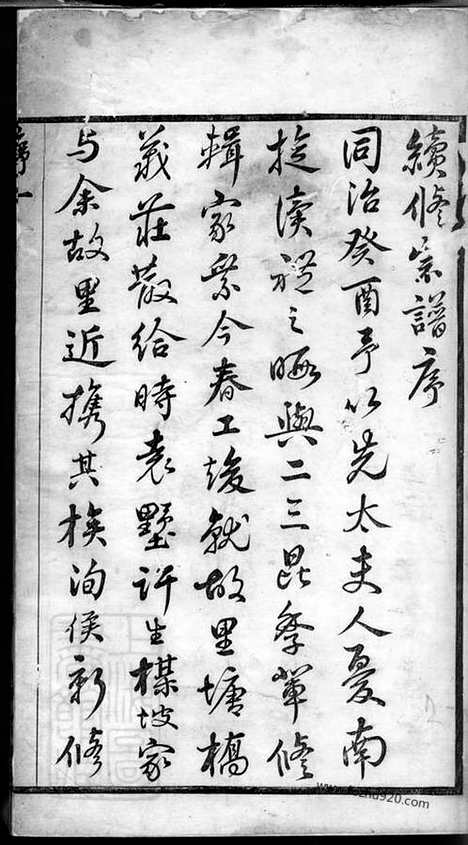 續修宗譜序
同治癸酉予以先太夫人憂南
旋讀禮之暇與二三昆季輩修
輯家乘今春工竣就故里塘橋
義莊散給時袁墅許生楳坡家
与余故里近攜其族洵侯新修
www.fozhu920.com